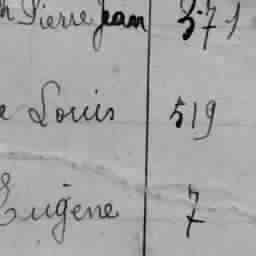 Pierre Jean 371
Louis 519
Eugène 7